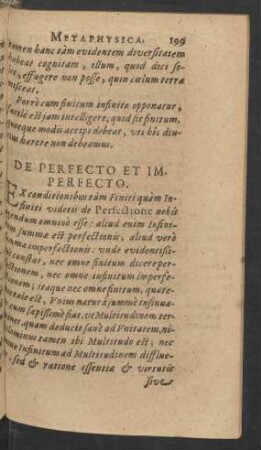 METAPHYSICA. 199
tamen hanc tàm evidentem diversitatem
habeat cognitam, illum, quod dici so-
effugere non posse, quin cælum terræ
misceat.
Porrò cum finitum infinito opponatur,
facilè est jam intelligere, quid sit finitum,
modis accipi debeat, ut hîc diu-
hærere non debeamus.
DE PERFECTO ET IM-
PERFECTO.
EX conditionibus tàm Finiti quàm In-
finiti videtis de Perfectione nobis
omninò esse: aliud enim Infini-
summa est perfectionis, aliud verò
imperfectionis: unde evidentissi-
constat, nec omne finitum dicere per-
nec omne infinitum imperfe-
itaque nec omne finitum, quate-
est, Unitas naturâ
sæpissimè fias, ut Multitudinem ter-
quam deducte sanè ad Unitatem, nô-
tamen ibi Multitudo est; nec
Infinitum ad Multitudinem difflue-
sed & ratione essentiæ & virtutis
sive